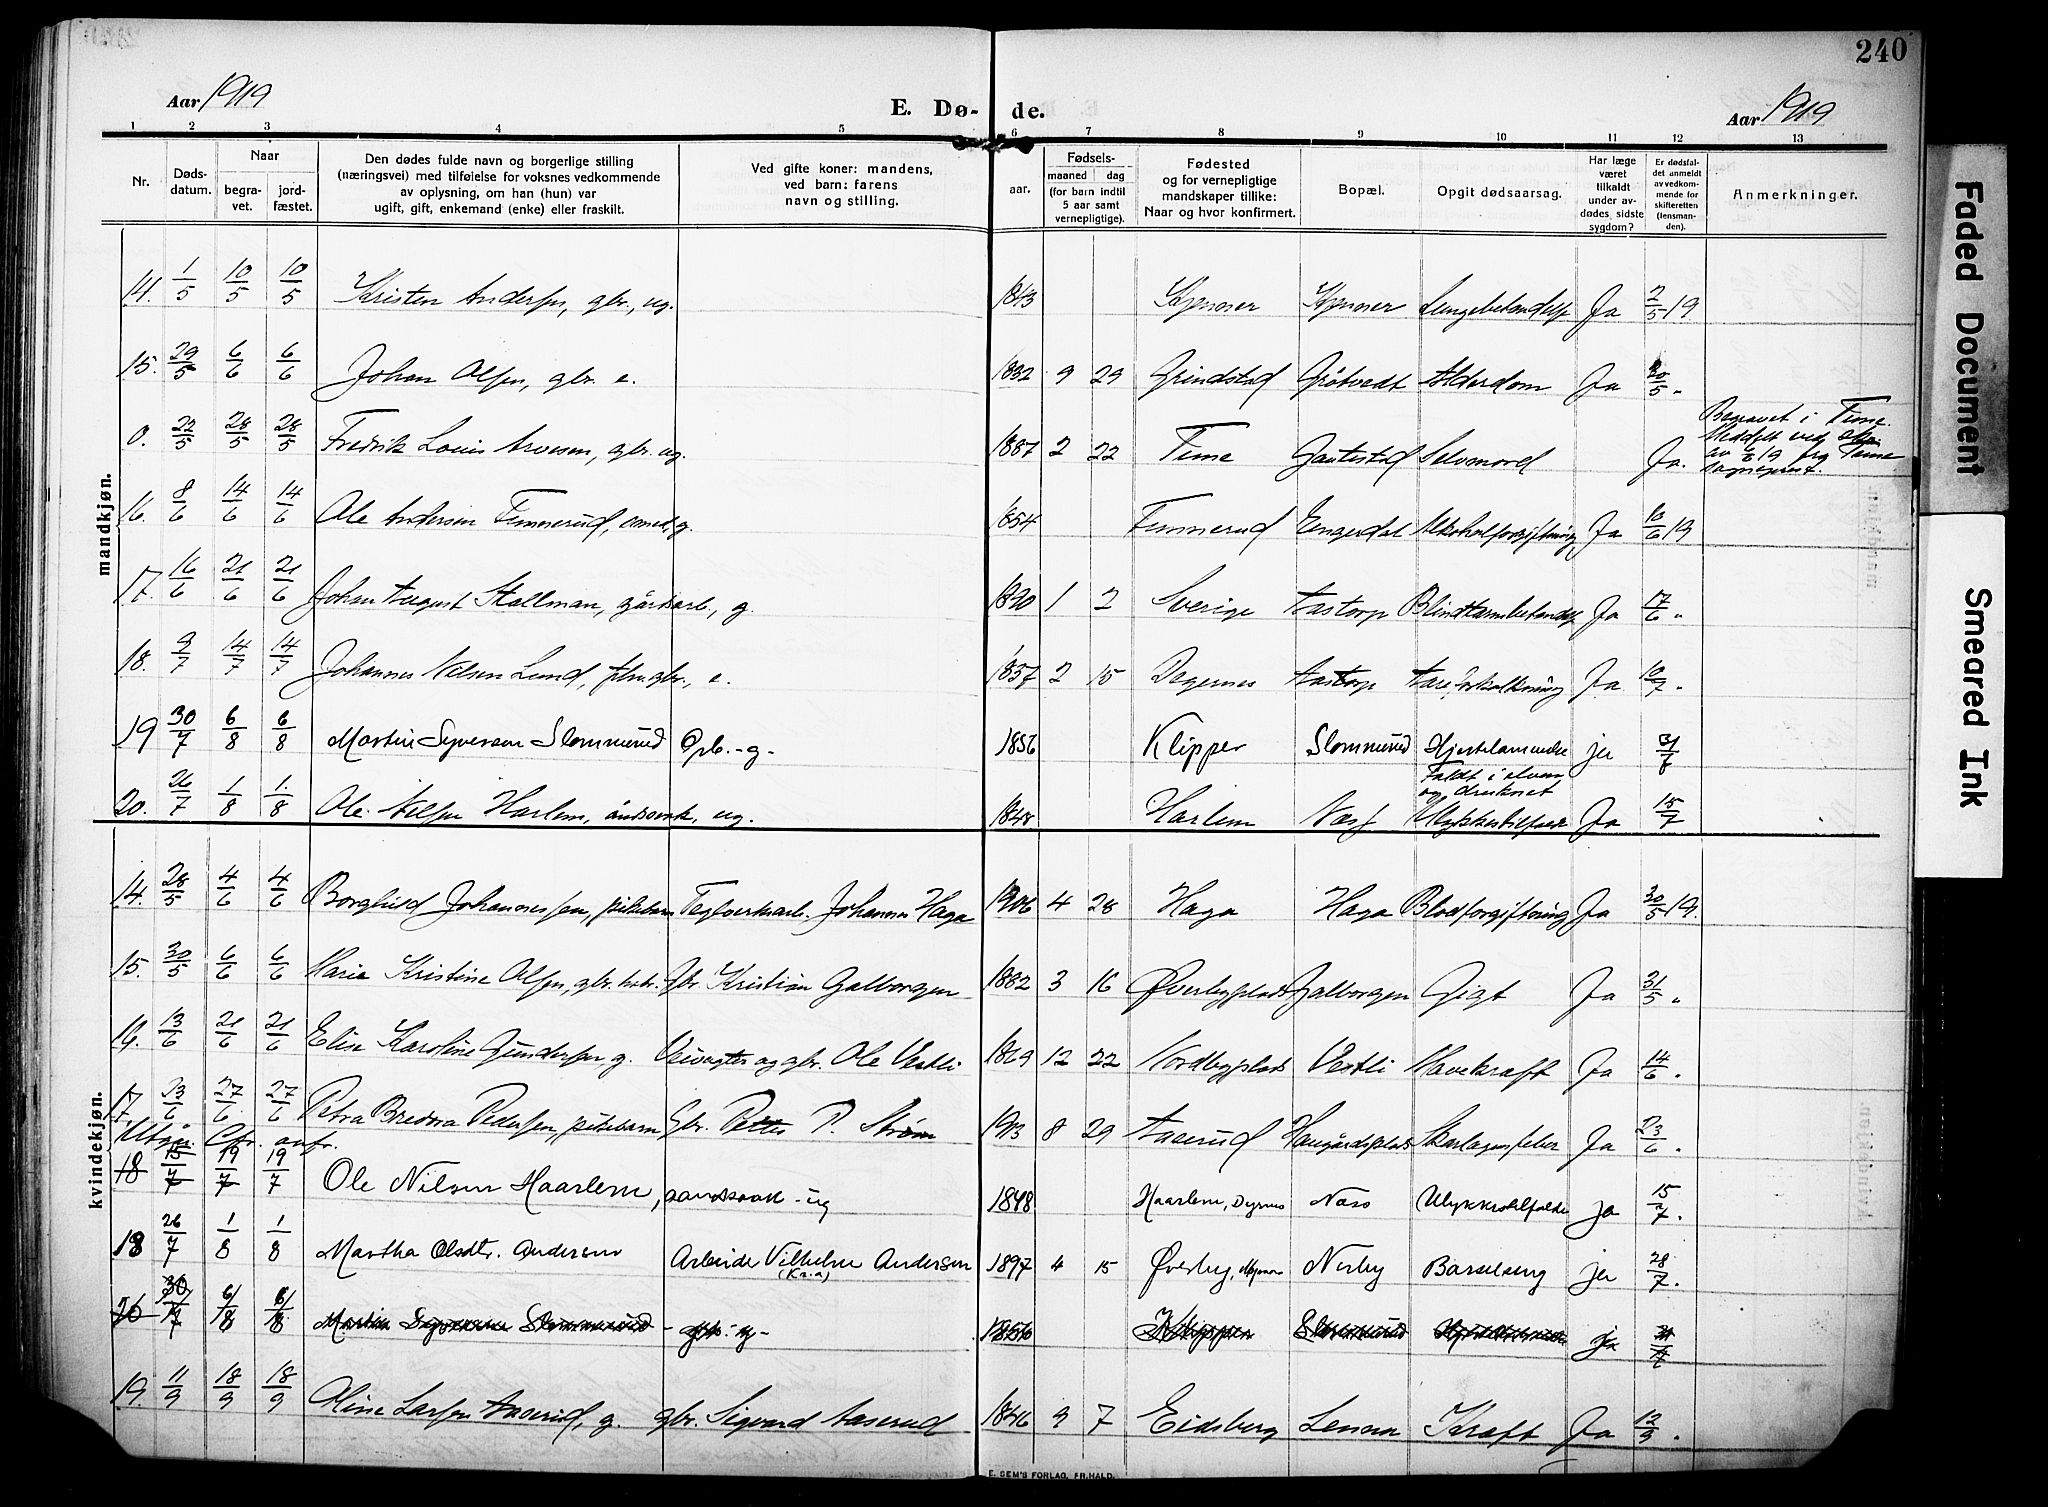 240
Aar 1919
E. Dø- de.
Aar 1919
1 2 3 4 5 6 7 8 9 10 11 12 13
Nr.
Døds-
datum.
Naar
begra-
vet.
jord-
fæstet.
Den dødes fulde navn og borgerlige stilling
(næringsvei) med tilføielse for voksnes vedkommende
av oplysning, om han (hun) var
ugift, gift, enkemand (enke) eller fraskilt.
Ved gifte koner: mandens,
ved barn: farens
navn og stilling.
Fødsels-
aar.
maaned dag
(for barn indtil
5 aar samt
vernepligtige).
Fødested
og for vernepligtige
mandskaper tillike:
Naar og hvor konfirmert.
Bopæl.
Opgit dødsaarsag.
Har læge
været
tilkaldt
under av-
dødes, sidste
sygdom?
Er dødsfal-
det anmeldt
av vedkom-
mende for
skifteretten
(lensman-
den).
Anmerkninger.
mandkjøn.
14. 1/5 10/5 10/5 Kristen Andersen, gbr., ug. 1843 Lungebetændelse Ja 2/5 19
15. 29/5 6/6 6/6 Johan Olsen, gbr. e. 1832 9 29 Grindstad Grötvedt Alderdom Ja 30/5 "
0. 22/5 28/5 28/5 Fredrik Louis Arvesen, gbr. ug. 1887 2 22 Time Gautestad Selvmord Ja. Begravet i Time. Meddelt ved av fra Time sogneprest.
16. 8/6 14/6 14/6 Ole Andersen Timmerud, g. 1854 Timmerud Engerdal Alkoholforgiftning Ja 10/6 19
17. 16/6 21/6 21/6 Johan August Stallman, gårdsarb., g. 1 2 Sverige Aastorp Blindtarmbetændelse Ja 17/6 "
18. 9/7 14/7 14/7 Johannes Nilsen Lund, gbr., e. 1837 2 15 Degernes Aastorp Aareforkalkning Ja 10/7 "
19 30/7 6/8 6/8 Martin Syversen Slommerud Gpb. - g - 1856 Klipper Slommerud Hjertelammelse ja 31/7
20. 26/7 1/8 1/8 Ole Nilsen Harlem, åndssvak, ug. 1848 Harlem Næs Faldt i elven og druknet Ulykkestilfælde Ja 15/7
kvindekjøn.
14. 28/5 4/6 4/6 Borghild Johannessen, pikebarn Teglverksarb. Johannes Haga 1906 4 28 Haga Haga Blodforgiftning Ja 30/5 19.
15. 30/5 6/6 6/6 Maria Kristine Olsen, Gbr. Kristian Galborgen 1882 3 16 Øverbyplads Galborgen Gigt Ja 31/5 "
16. 13/6 21/6 21/6 Elise Karoline Gundersen, g. Veivogter og gbr. Ole Vestli 1869 12 22 Nordbyplads Vestli Mavekræft Ja 14/6 "
17. 23/6 27/6 27/6 Petra Bredora Pedersen, pikebarn Gbr. Petter P. Strøm 1913 8 29 Aaserud Haugårdsplads Skarlagensfeber Ja 23/6 "
Utgår. Cfr. ovfr.
18 15/7 19/7 19/7 Ole Nilsen Haarlem, - ug 1848 Haarlem, Næs Ulykkestilfælde ja 15/7.
18 26/7 1/8 1/8 Martha Olsdtr. Andersen Arbeider Vilhelm Andersen (Kr.a) 1897 4 15 Øverby, Nerby Barselseng ja 28/7.
20 30/7 6/8 6/8 Martin Syversen Slommerud - gbr. - g - 1856 Klipper Slommerud Hjertelammelse ja 31/7
19. 11/9 18/9 18/9 Oline Larsen Aaserud, g. gbr. Sigvard Aaserud 1846 9 7 Eidsberg Kræft Ja 12/9 "
E. SEM'S FORLAG, FR.HALD.
Faded Document
Smeared Ink